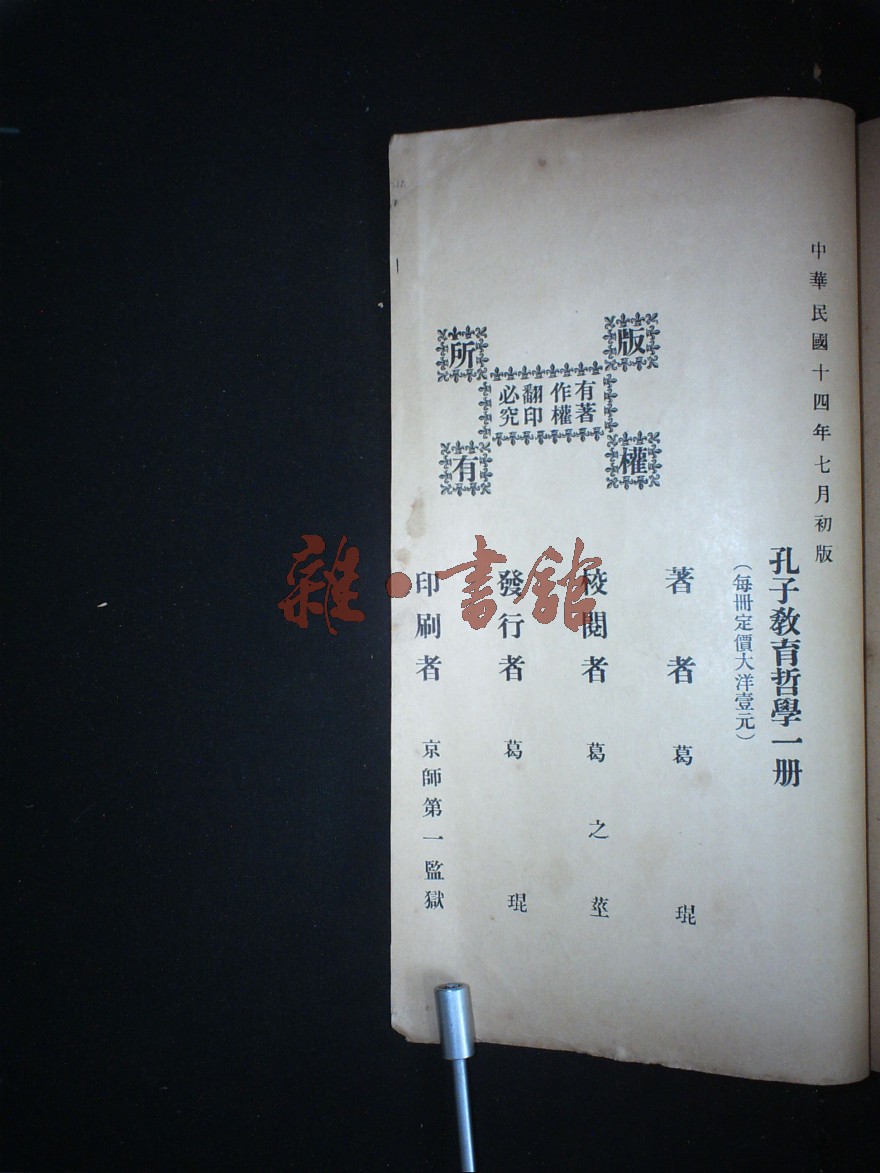 中華民國十四年七月初版
孔子敎育哲學一册
（每冊定價大洋壹元）
著者 葛琨
校閱者 葛之莖
發行者 葛琨
印刷者 京師第一監獄
版權
所有
有著
作權
翻印
必究
雜·書館